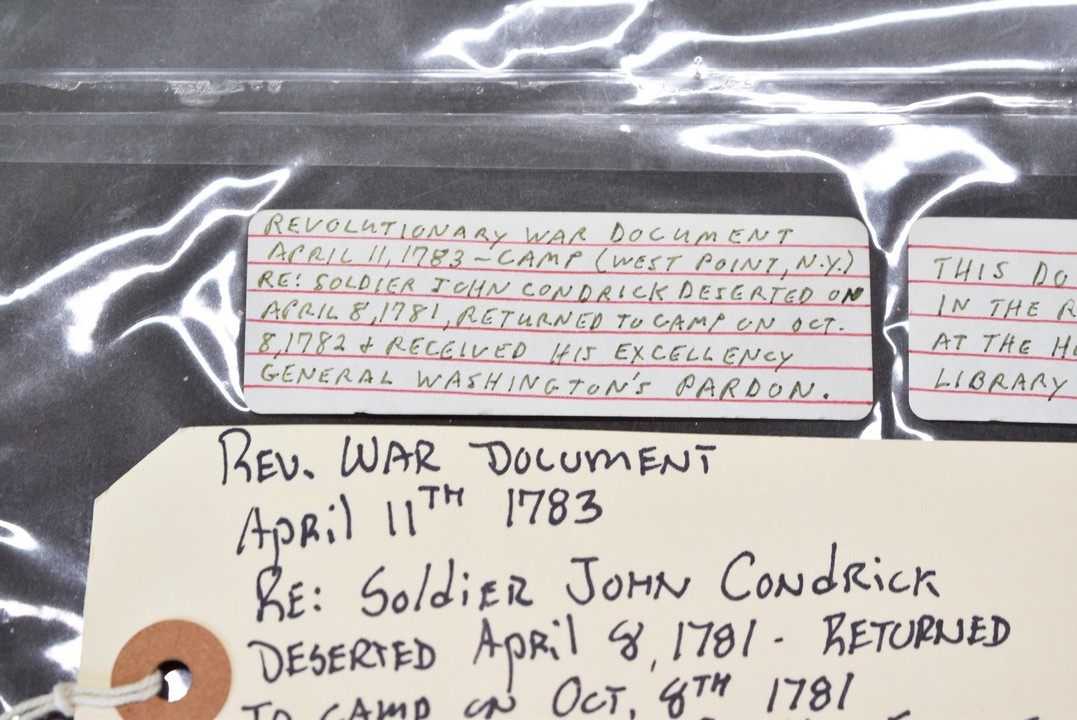 REVOLUTIONARY WAR DOCUMENT
APRIL 11, 1783 - CAMP (WEST POINT, N.Y.)
RE: SOLDIER JOHN CONDRICK DESERTED ON
APRIL 8, 1781, RETURNED TO CAMP ON OCT.
8, 1782 & RECEIVED HIS EXCELLENCY
GENERAL WASHINGTON'S PARDON.
THIS DO
IN THE R
AT THE H
LIBRARY
REV. WAR DOCUMENT
April 11TH 1783
RE: Soldier JOHN CONDRICK
DESERTED April 8, 1781 - RETURNED
TO CAMP ON OCT, 8TH 1781